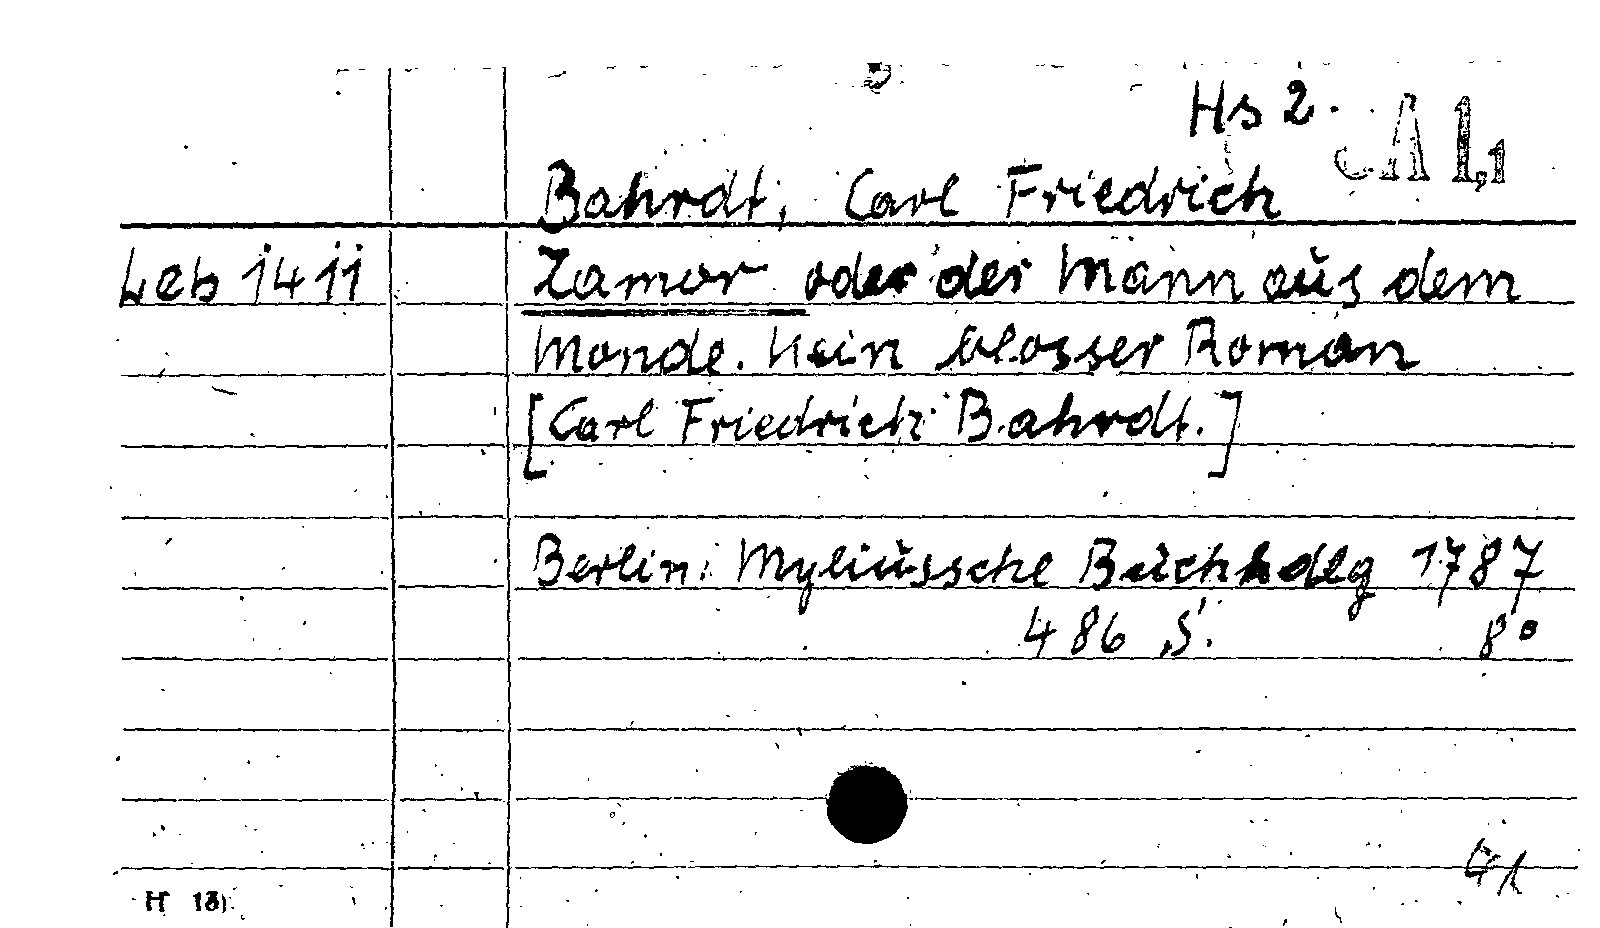 Hs 2.
A 1,1
Bahrdt, Carl Friedrich
Leb 1411 Zamor oder der Mann aus dem
Monde. Kein blosser Roman
[Carl Friedrich Bahrdt.]
Berlin: Myliussche Buchhdlg 1787
486 S. 8°
H 13)